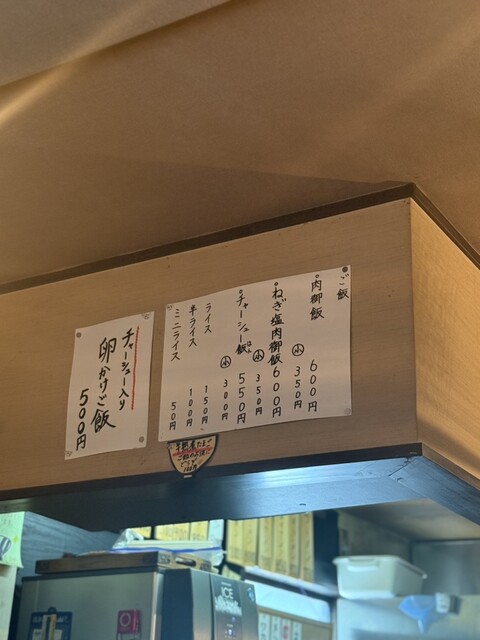 ご飯
肉御飯 600円
小 350円
ねぎ塩肉御飯 600円
小 350円
チャーシュー飯 550円
小 300円
ライス 150円
半ライス 100円
ミニライス 50円
チャーシュー入り
卵かけご飯
500円
ICE